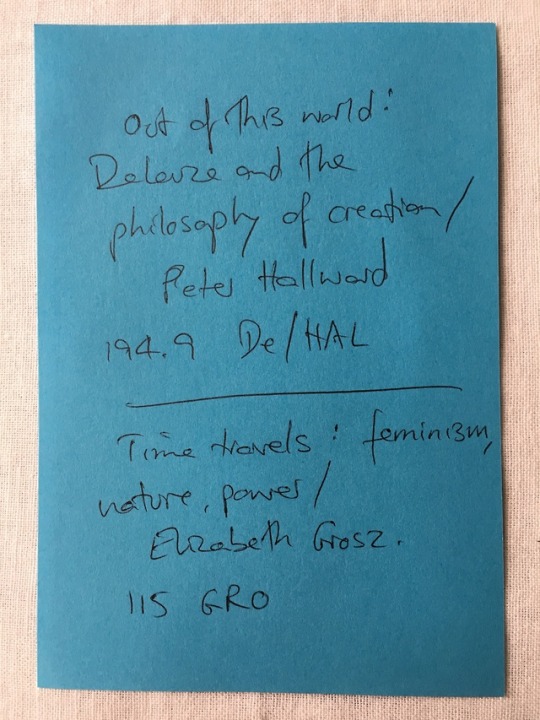 Out of this world:
Deleuze and the
philosophy of creation/
Peter Hallward
194.9 De/HAL
Time travels : feminism,
nature, power/
Elizabeth Grosz.
115 GRO